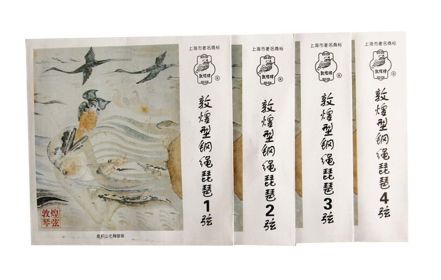 上海市著名商标
敦煌牌
敦煌型钢绳琵琶1弦
敦煌
琴弦
上海市著名商标
敦煌牌
敦煌型钢绳琵琶2弦
上海市著名商标
敦煌牌
敦煌型钢绳琵琶3弦
上海市著名商标
敦煌牌
敦煌型钢绳琵琶4弦